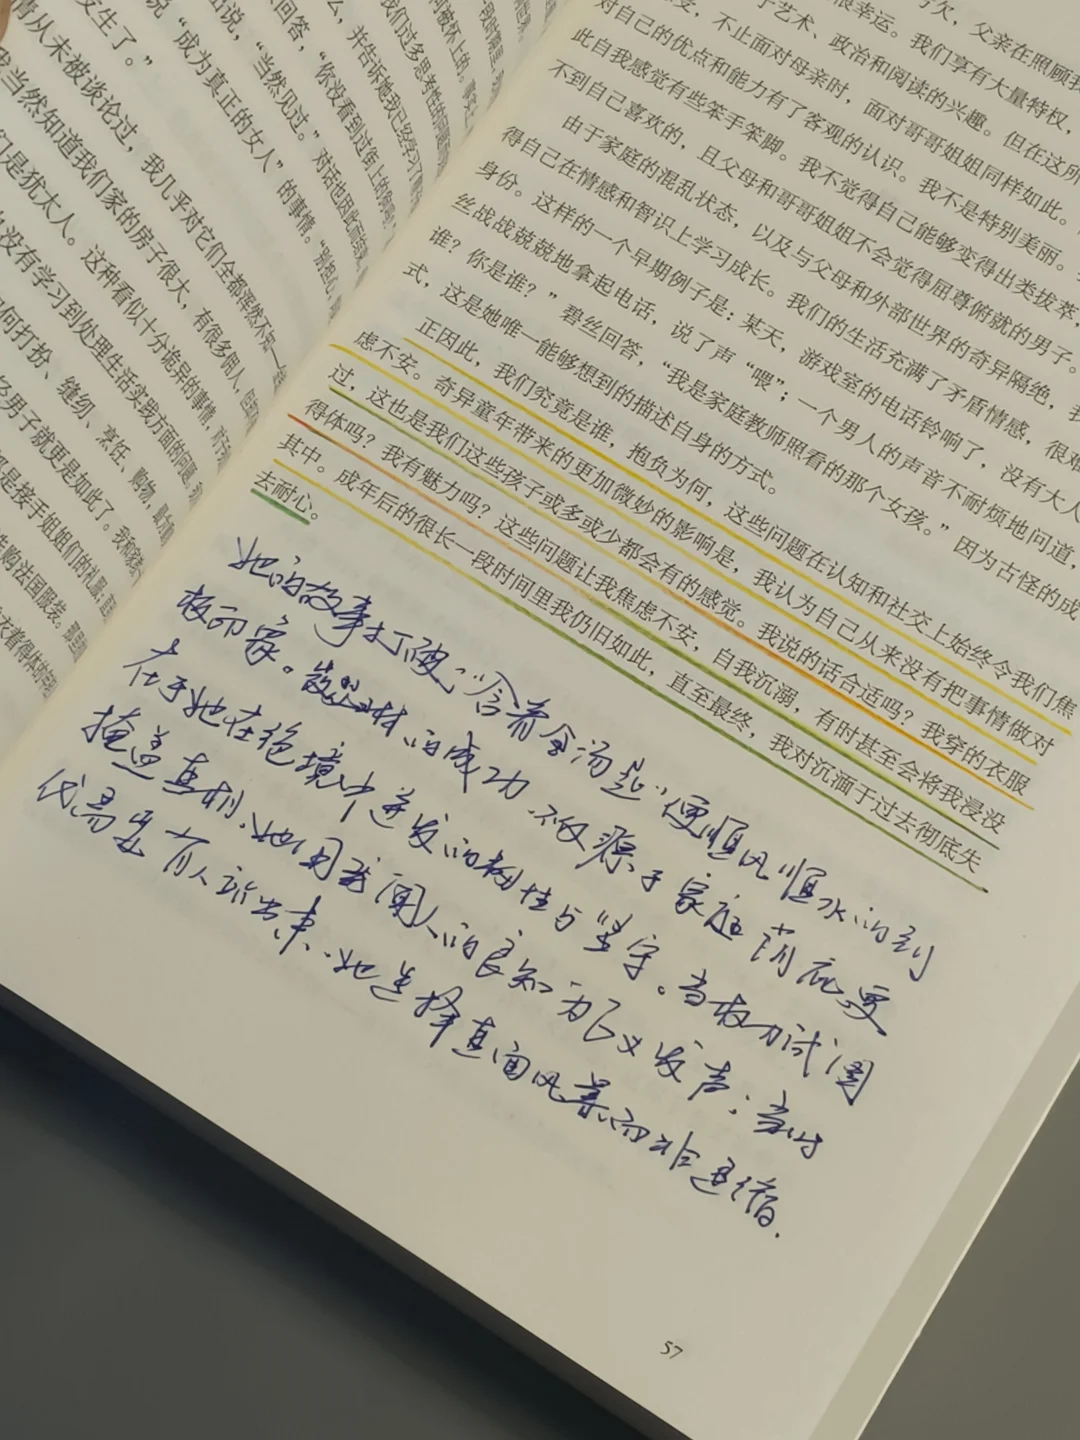 发生了。”
情从未被谈论过，我几乎对它们全都浑然不知
我当然知道我们家的房子很大，有很多佣人，
们是犹太人。这种看似十分诡异的事情，
没有学习到处理生活实践方面的问题
何打扮、缝纫、烹饪、购物，
男子就更是如此了。我和
是接手姐姐们的礼服；
购法国服装。
衣着得体的
说，“成为真正的女人”的事情。“别担心，
出说，“当然见过。”对话也因此而
回答，“你没看到过街上的
么，并告诉她我已经学习了
我们过多思考性的问题
何被怀上的。事实
欠，父亲在照顾我
很幸运。我们享有大量特权，
于艺术、政治和阅读的兴趣。但在这所
受，不止面对母亲时，面对哥哥姐姐同样如此。
对自己的优点和能力有了客观的认识。我不是特别美丽。
此自我感觉有些笨手笨脚。我不觉得自己能够变得出类拔萃，
不到自己喜欢的，且父母和哥哥姐姐不会觉得屈尊俯就的男子。
由于家庭的混乱状态，以及与父母和外部世界的奇异隔绝，我
得自己在情感和智识上学习成长。我们的生活充满了矛盾情感，很难
身份。这样的一个早期例子是：某天，游戏室的电话铃响了，没有大人
丝战战兢兢地拿起电话，说了声“喂”；一个男人的声音不耐烦地问道，
谁？你是谁？”碧丝回答，“我是家庭教师照看的那个女孩。”因为古怪的成
式，这是她唯一能够想到的描述自身的方式。
正因此，我们究竟是谁，抱负为何，这些问题在认知和社交上始终令我们焦
虑不安。奇异童年带来的更加微妙的影响是，我认为自己从来没有把事情做对
过，这也是我们这些孩子或多或少都会有的感觉。我说的话合适吗？我穿的衣服
得体吗？我有魅力吗？这些问题让我焦虑不安，自我沉溺，有时甚至会将我浸没
其中。成年后的很长一段时间里我仍旧如此，直至最终，我对沉湎于过去彻底失
去耐心。
她的故事打破“含着金汤匙”便顺风顺水的刻
板印象。的成功，不仅源于家庭荫庇，更
在于她在绝境中迸发的韧性与坚守。当权力试图
掩盖真相，她用新闻人的良知为正义发声；当时
代需要有人站出来，她选择直面风暴而非退缩.
57